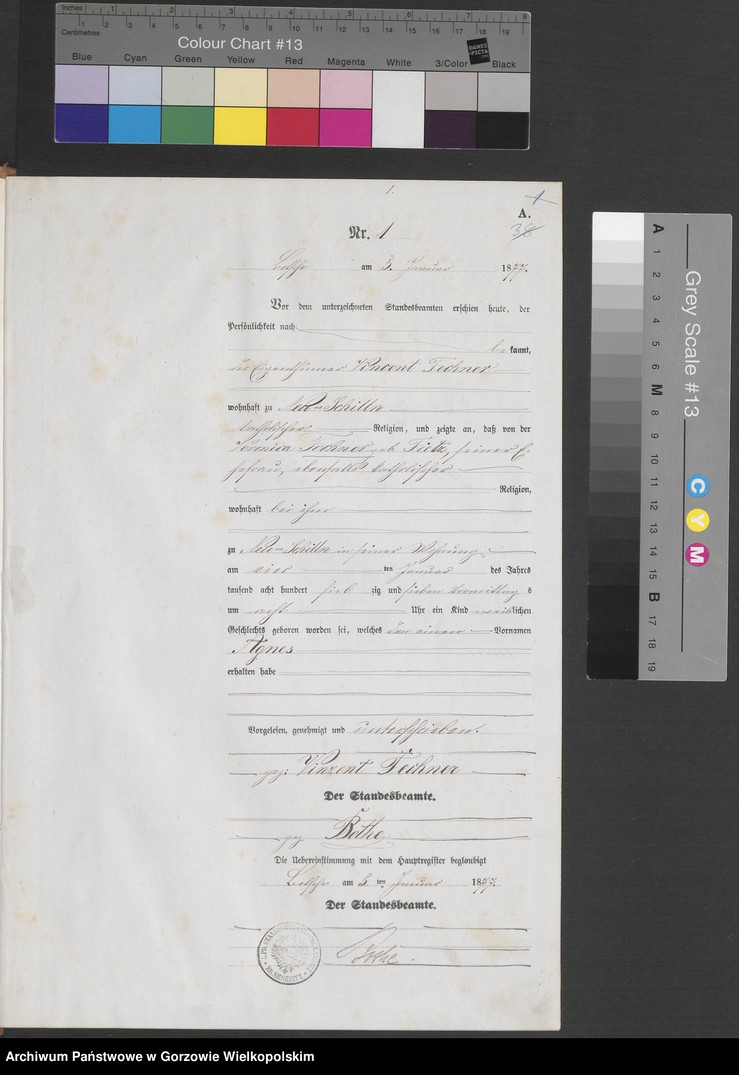 Inches 1 2 3 4 5 6 7 8
Centimetres 1 2 3 4 5 6 7 8 9 10 11 12 13 14 15 16 17 18 19
Colour Chart #13
Blue Cyan Green Yellow Red Magenta White 3/Color Black
DANES-PICTA
1.
A.
Nr. 1
am 5. Januar 1877.
Vor dem unterzeichneten Standesbeamten erschien heute, der
Persönlichkeit nach
bekannt,
der Eigenthümer Vincent Fechner
wohnhaft zu Neu-Schilln
katholischer Religion, und zeigte an, daß von der
Veronica Fechner geb. Tietz, seiner E
hefrau, ebenfalls katholischer
Religion,
wohnhaft bei ihm
zu Neu-Schilln in seiner Wohnung
am vier ten Januar des Jahres
tausend acht hundert sieb zig und sieben Vormittag s
um acht Uhr ein Kind weiblichen
Geschlechts geboren worden sei, welches den einen Vornamen
Agnes
erhalten habe
Vorgelesen, genehmigt und unterschrieben.
gez. Vinzent Fechner
Der Standesbeamte.
gez Bothe
Die Uebereinstimmung mit dem Hauptregister beglaubigt
am 5 ten Januar 1877.
Der Standesbeamte.
Bothe.
Grey Scale #13
A 1 2 3 4 5 6 M 8 9 10 11 12 13 14 15 B 17 18 19
C
Y
M
Archiwum Państwowe w Gorzowie Wielkopolskim